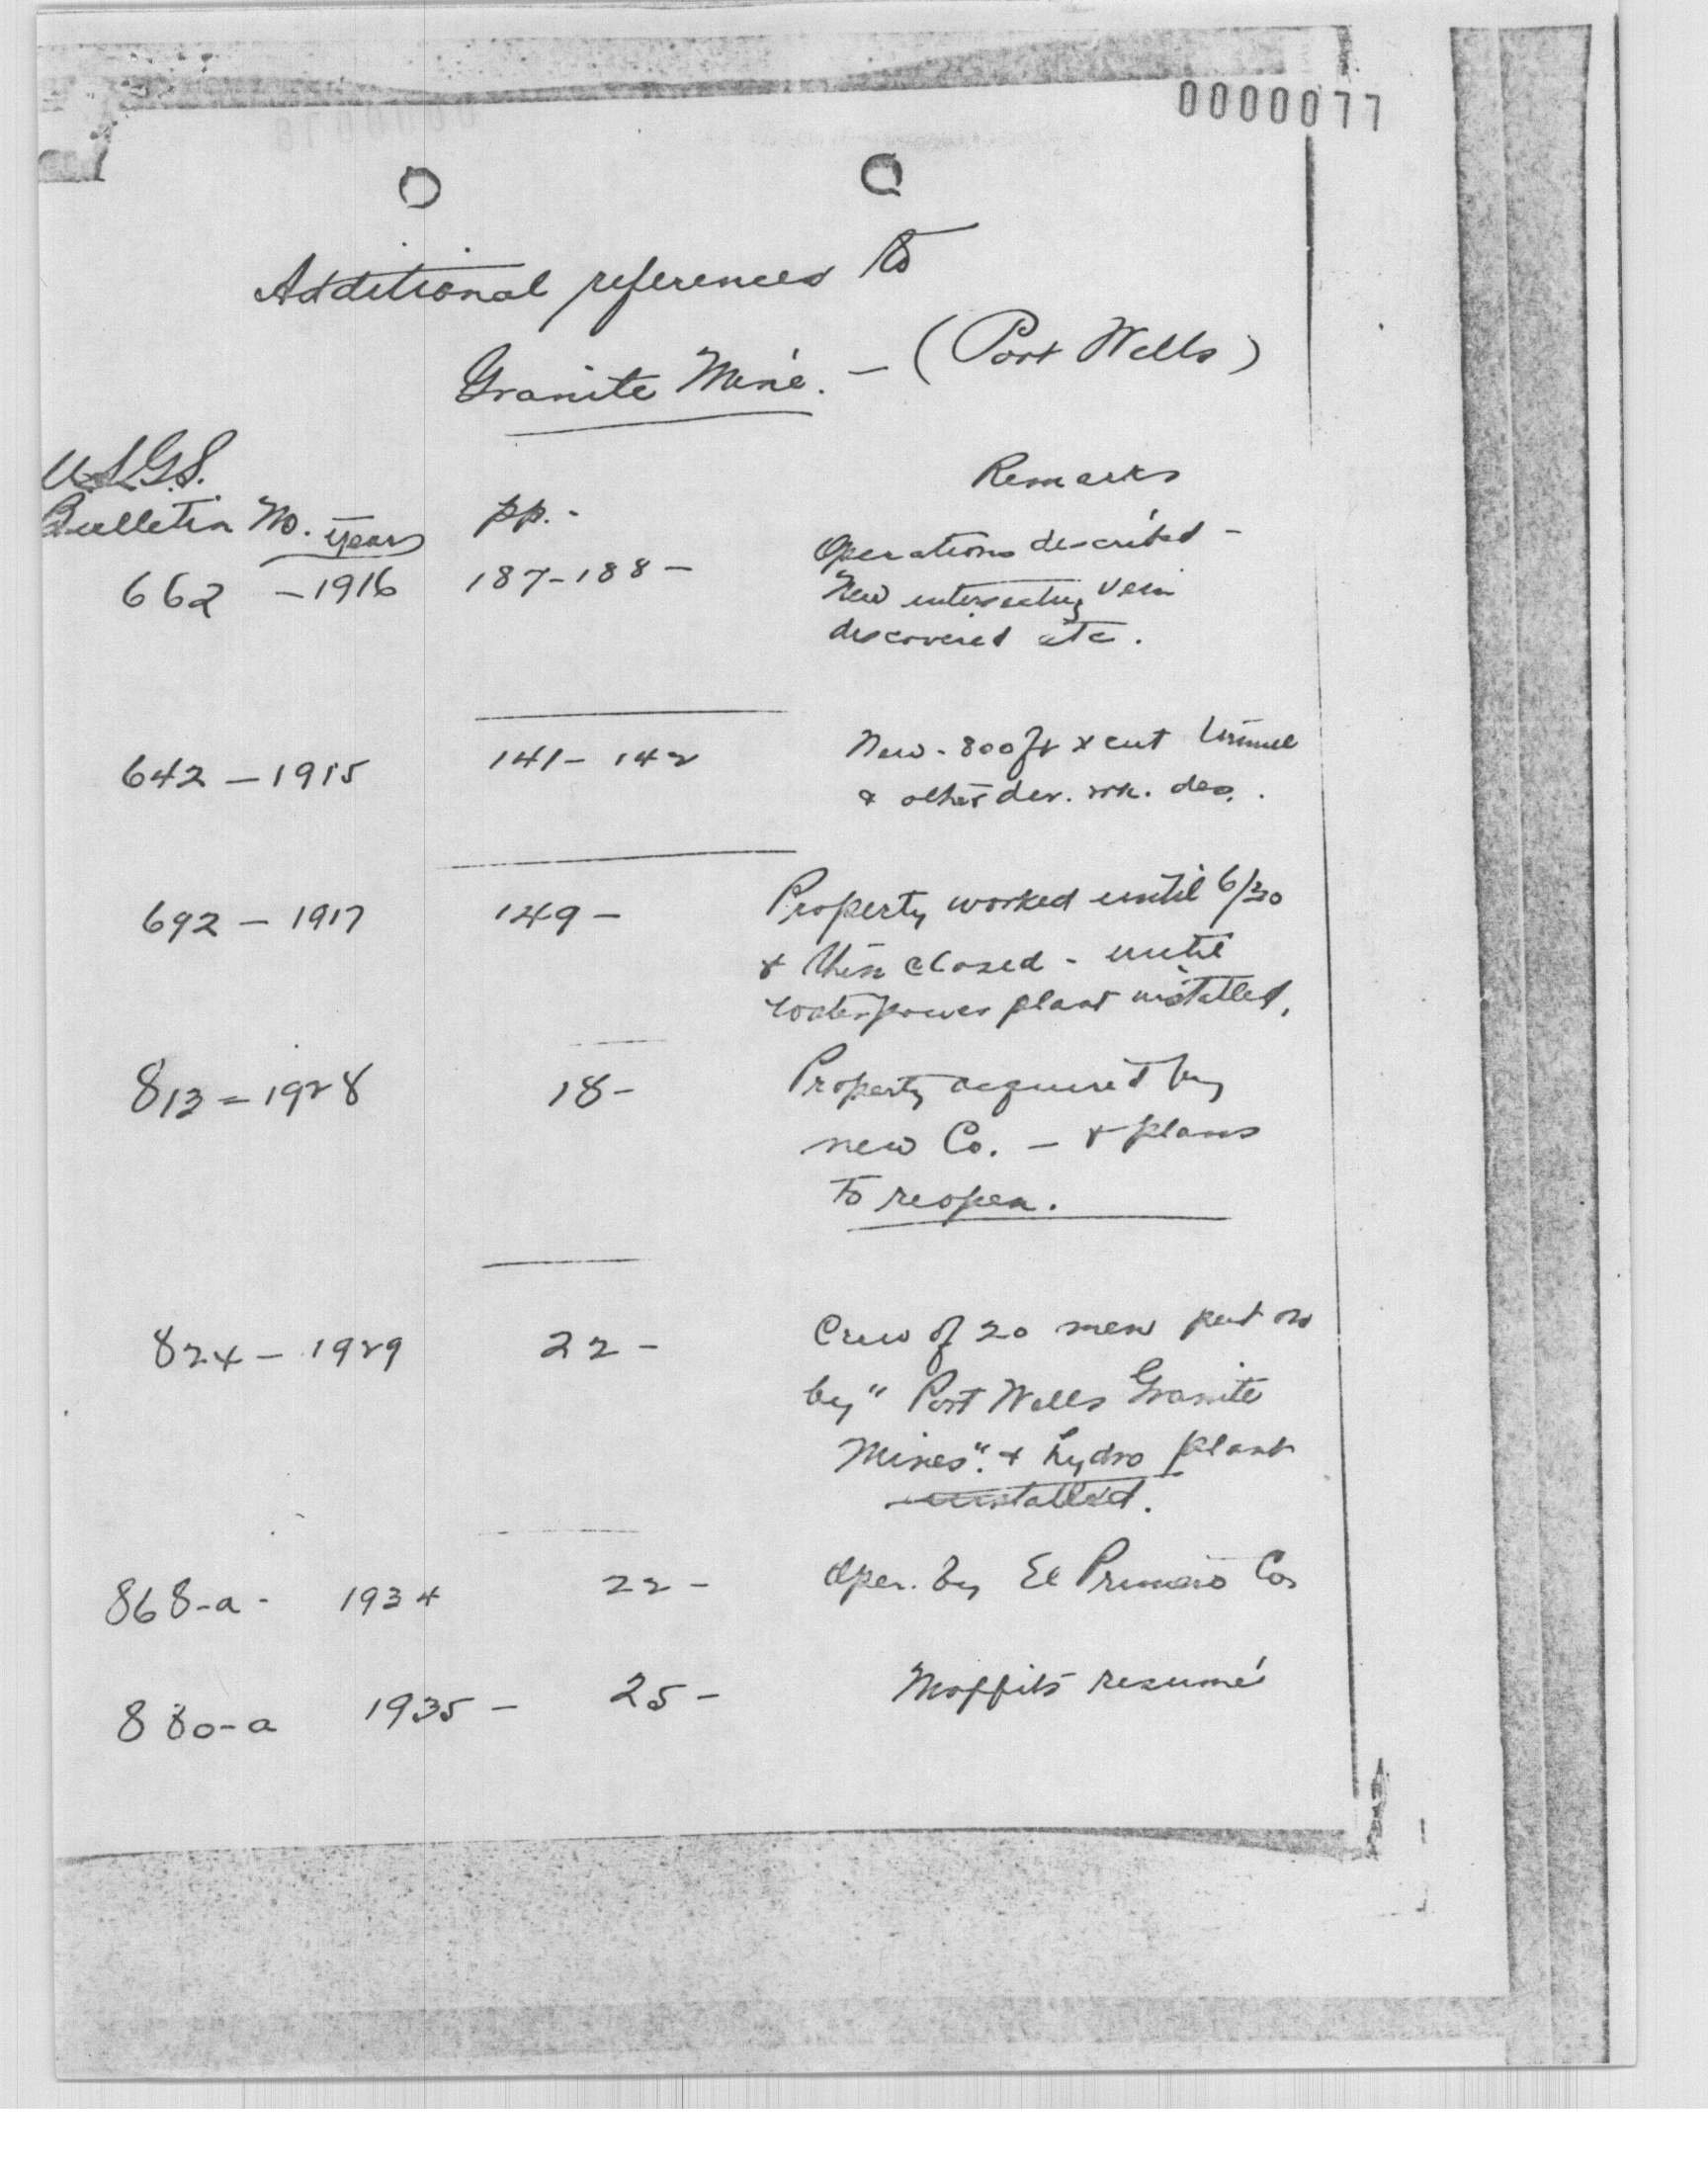 0000077
Additional references to
Granite Mine. - (Port Wells)
U.S.G.S.
Bulletin No. years pp. - Remarks
662 - 1916 187-188 - Operations described -
New intersecting vein
discovered etc.
642 - 1915 141 - 142 New - 800 ft x cut tunnel
& other dev. wk. des.
692 - 1917 149 - Property worked until 6/30
& then closed - until
waterpower plant installed.
813 = 1928 18 - Property acquired by
new Co. - & plans
to reopen.
824 - 1929 22 - Crew of 20 men put on
by "Port Wells Granite
Mines". & hydro plant
installed.
868-a - 1934 22 - Oper. by El Primero Co.
880-a 1935 - 25 - Moffits resumé